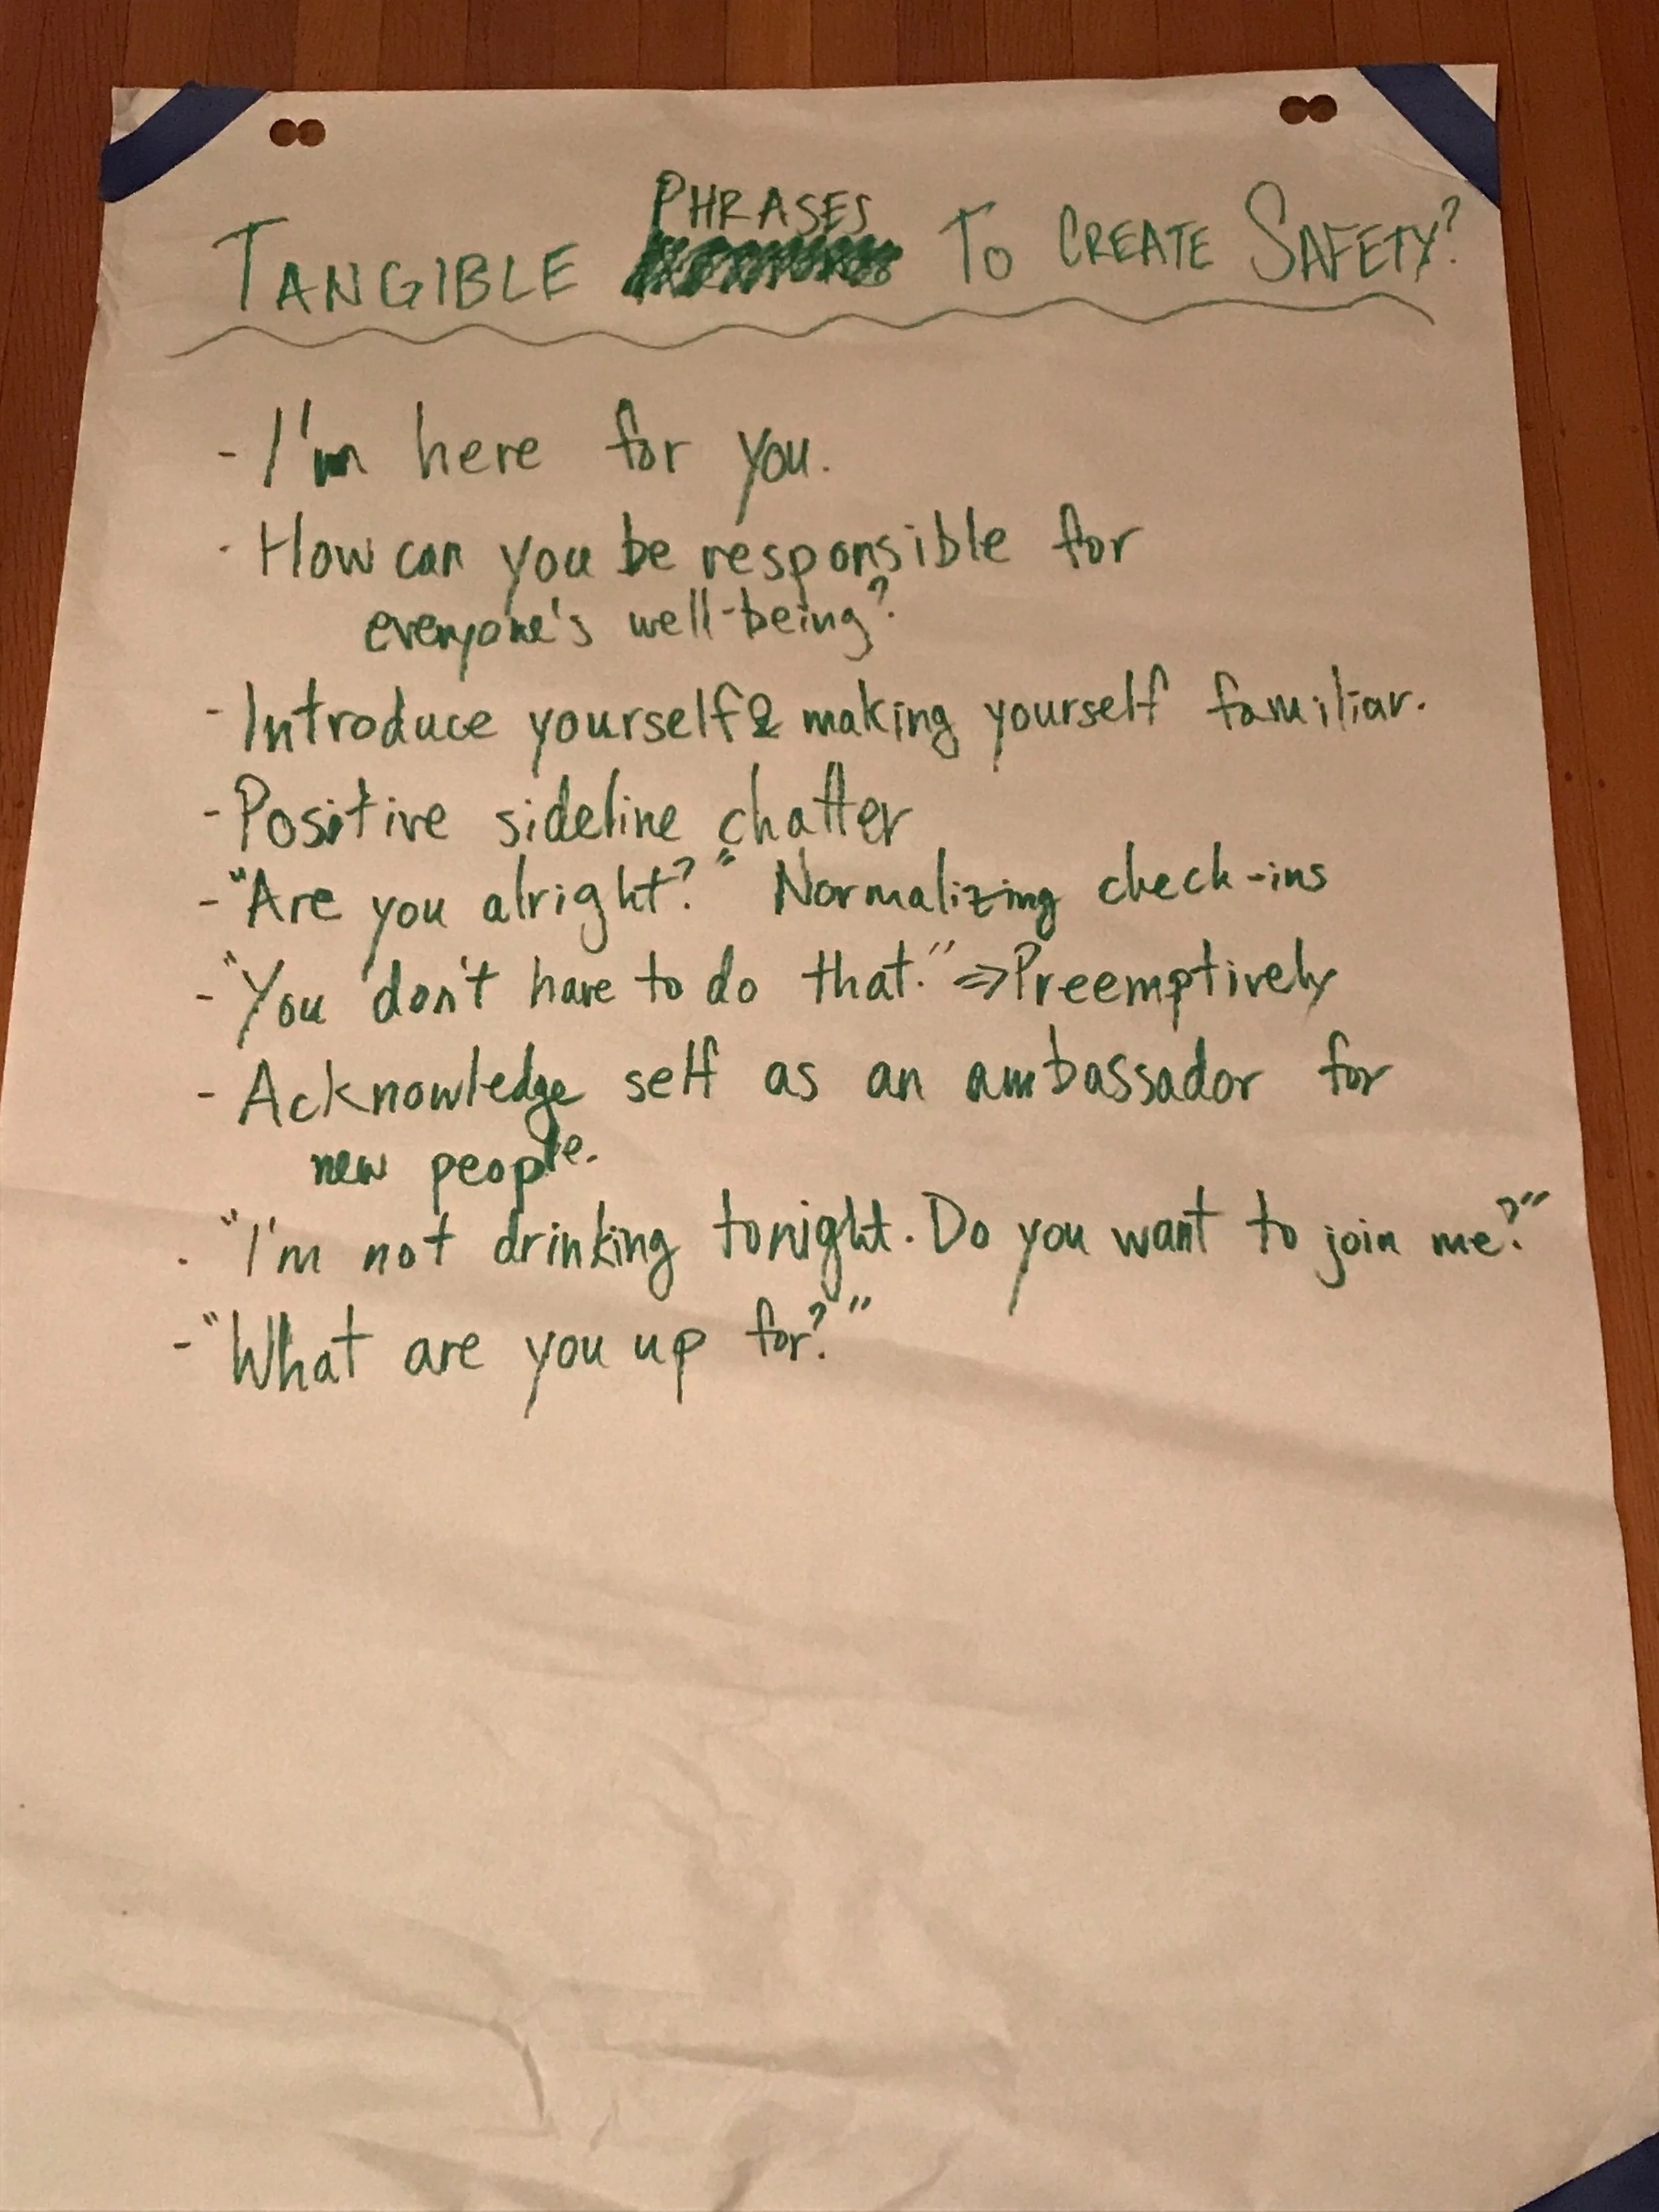 TANGIBLE PHRASES TO CREATE SAFETY?
- I'm here for you.
- How can you be responsible for
everyone's well-being?
- Introduce yourself & making yourself familiar.
- Positive sideline chatter
- "Are you alright?" Normalizing check-ins
- "You don't have to do that." => Preemptively
- Acknowledge self as an ambassador for
new people.
- "I'm not drinking tonight. Do you want to join me?"
- "What are you up for?"